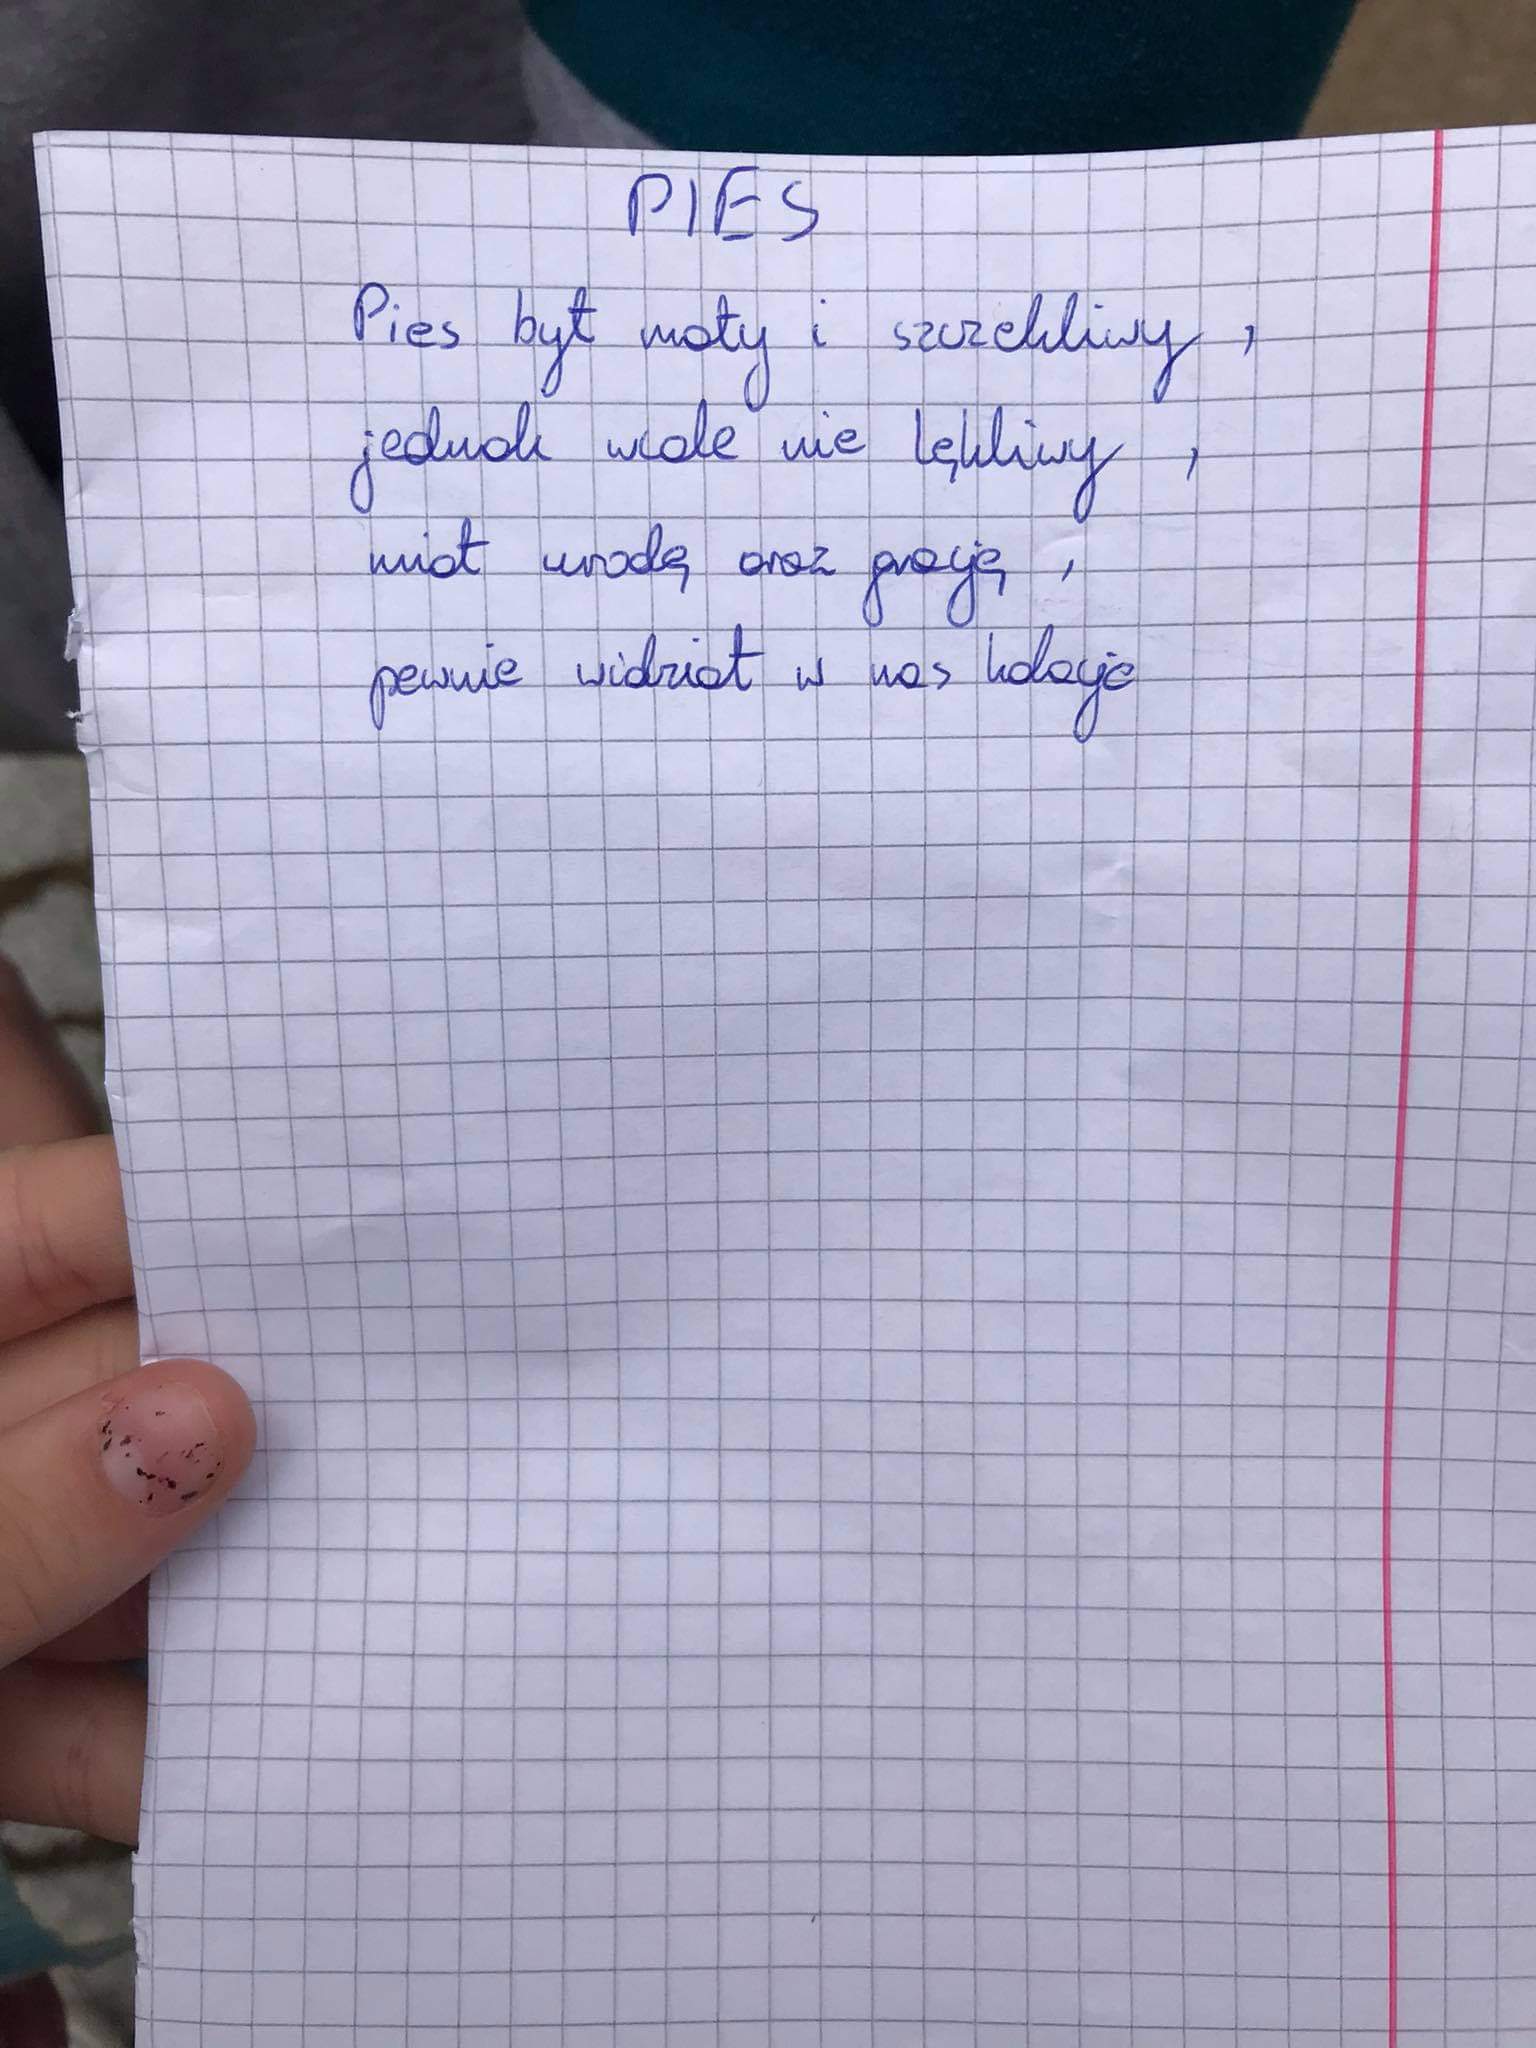 PIES
Pies był mały i szczekliwy,
jednak wcale nie lękliwy,
miał urodę oraz grację,
pewnie widział w nas kolację